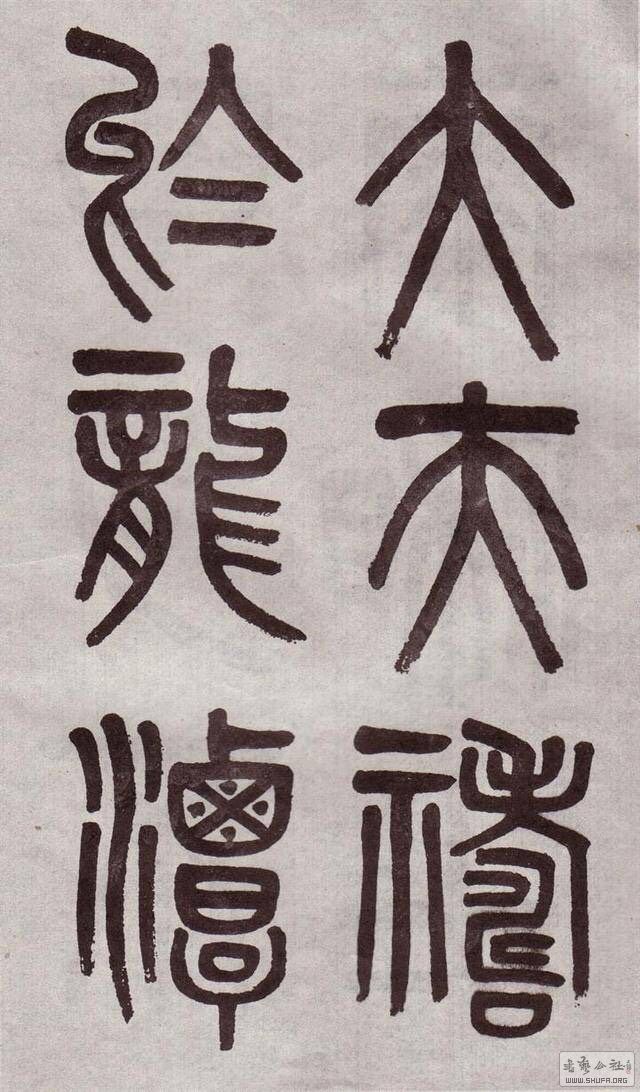 大夫禱
於龍潭
书艺公社
WWW.SHUFA.ORG